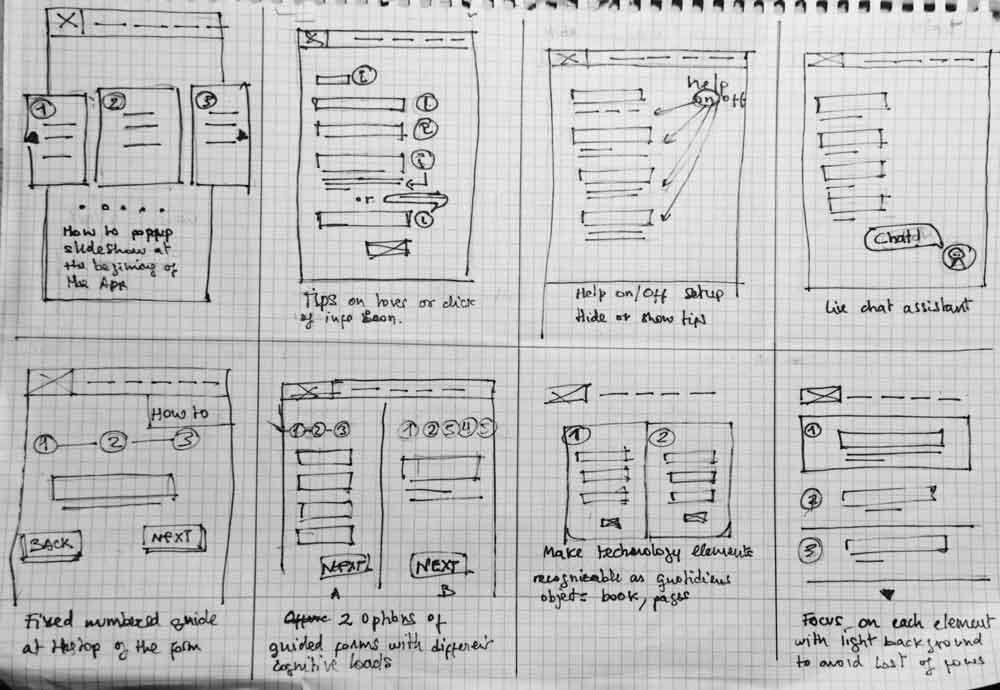 1
2
3
How to popup
slideshow at
the begining of
the App
i
i
i
i
or
i
Tips on hover or click
of info Icon.
help
on off
Help on/Off setup
Hide or show tips
Chat!
Live chat assistant
How to
1 2 3
BACK
NEXT
Fixed numbered guide
at the top of the form
1 2 3
1 2 3 4 5
NEXT
NEXT
A
B
2 Options of
guided forms with different
cognitive loads
1
2
Make technology elements
recognizable as quotidiens
objects: book, pages
1
2
3
Focus on each element
with light background
to avoid lost of focus